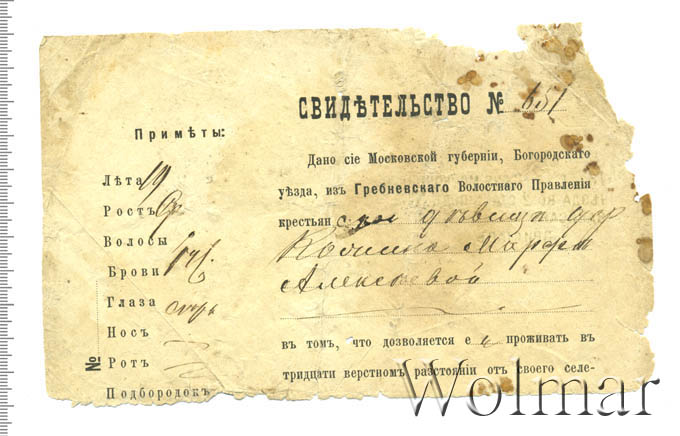 СВИДѢТЕЛЬСТВО № 651
Примѣты:
Лѣта 19
Ростъ Ср
Волосы
Брови
Глаза
Носъ
Ротъ
Подбородокъ
№
Дано сіе Московской губерніи, Богородскаго
уѣзда, изъ Гребневскаго Волостнаго Правленія
крестьян дѣвицѣ дер
Марфѣ
Алексѣевой
въ томъ, что дозволяется е й проживать въ
тридцати верстномъ разстояніи отъ своего селе-
Wolmar